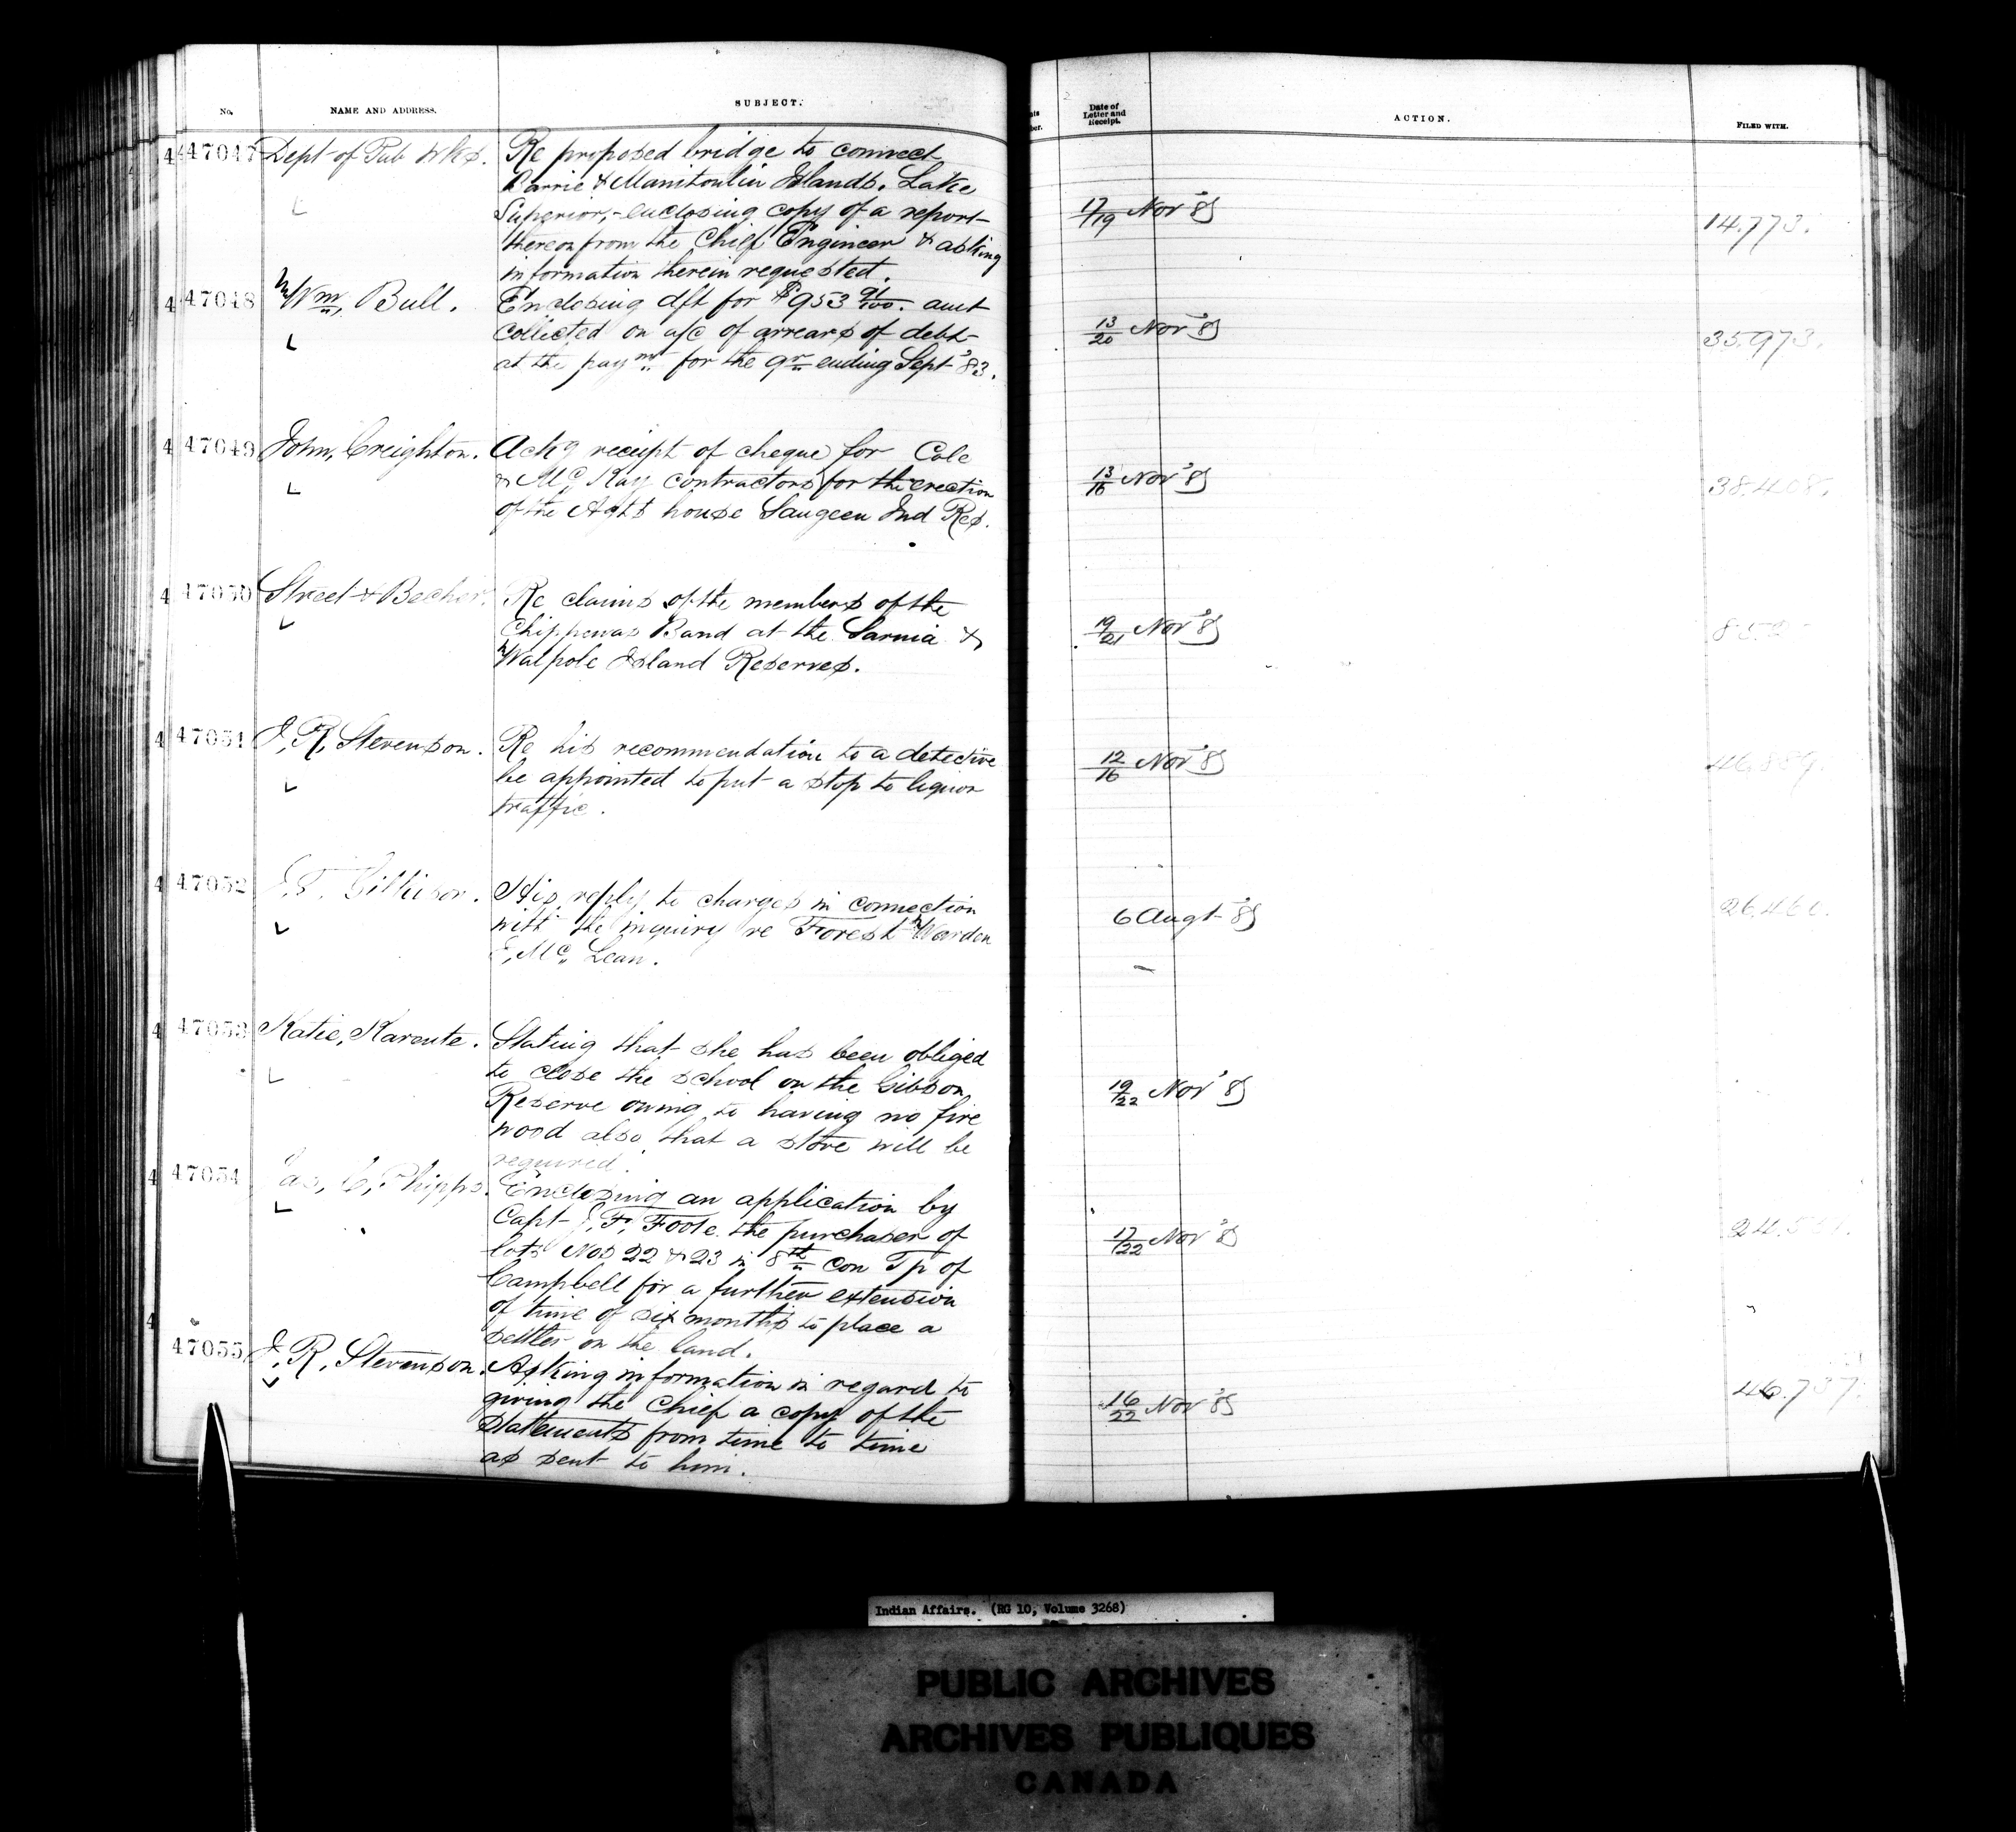 No.
NAME AND ADDRESS.
SUBJECT.
Date of
Letter and
Receipt.
ACTION.
FILED WITH.
47047
Dept of Pub Wks.
Re proposed bridge to connect
Barrie & Manitoulin Islands. Lake
Superior, - enclosing copy of a report
thereon from the Chief Engineer & asking
information therein requested.
17/19 Nov '85
14.773.
47048
Wm, Bull.
Enclosing dft for $953 91/100. amt
collected on a/c of arrears of debt
at the paymt for the qr ending Sept '83.
13/20 Nov '85
35.973.
47049
John, Creighton.
Ackg receipt of cheque for Cole
& Mc, Kay contractors for the erection
of the Agts house Saugeen Ind Res.
13/16 Nov '85
38.408.
47050
Street & Becher.
Re claims of the members of the
Chippewas Band at the Sarnia &
Walpole Island Reserves.
19/21 Nov '85
47051
J, R, Stevenson.
Re his recommendation to a detective
be appointed to put a stop to liquor
traffic.
12/16 Nov '85
46.889.
47052
J. T. Gilkison.
His reply to charges in connection
with the inquiry re Forest Warden
E, Mc, Lean.
6 Augt '85
47053
Katie, Karente.
Stating that she has been obliged
to close the school on the Gibson
Reserve owing to having no fire
wood also that a stove will be
required.
19/22 Nov '85
47054
Jas, C, Phipps.
Enclosing an application by
Capt J, F, Foote the purchaser of
lots Nos 22 & 23 in 8th Con Tp of
Campbell for a further extension
of time of six months to place a
settler on the land.
17/22 Nov '85
47055
J, R, Stevenson.
Asking information in regard to
giving the Chief a copy of the
Statements from time to time
as sent to him.
16/22 Nov '85
46.737.
Indian Affairs. (RG 10, Volume 3268)
PUBLIC ARCHIVES
ARCHIVES PUBLIQUES
CANADA